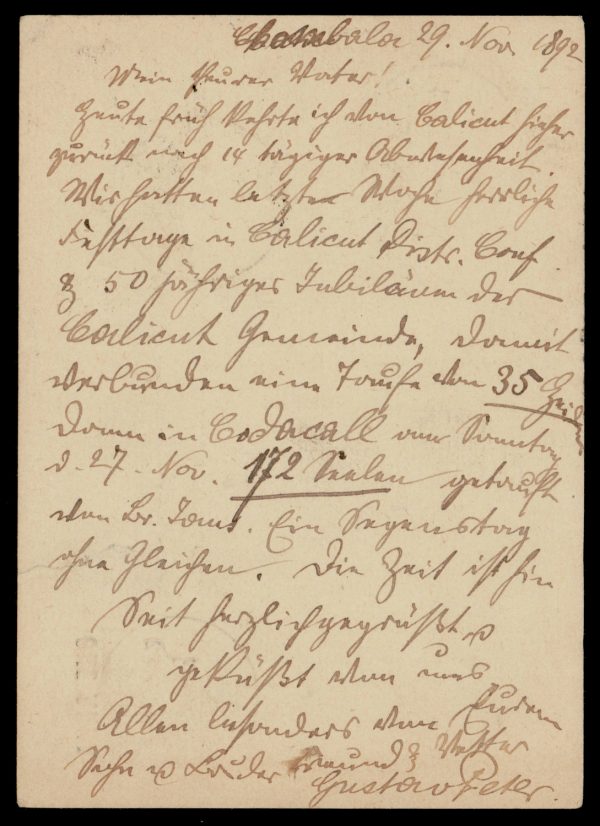 Chombala 29. Nov. 1892
Mein theurer Vater!
Heute früh kehrte ich von Calicut hieher
zurück nach 14 tägiger Abwesenheit.
Wir hatten letzte Woche herrliche
Festtage in Calicut Distr. Conf
& 50 jähriges Jubiläum der
Calicut Gemeinde, damit
verbunden eine Taufe von 35 Heiden
dann in Codacall am Sonntag
d. 27. Nov. 172 Seelen getauft
von Br. Jaus. Ein Segenstag
ohne Gleichen. Die Zeit ist hin
Seit herzlich gegrüßt u
geküßt von uns
Allen besonders von Eurem
Sohn u Bruder Freund & Vetter
Gustav Peter.